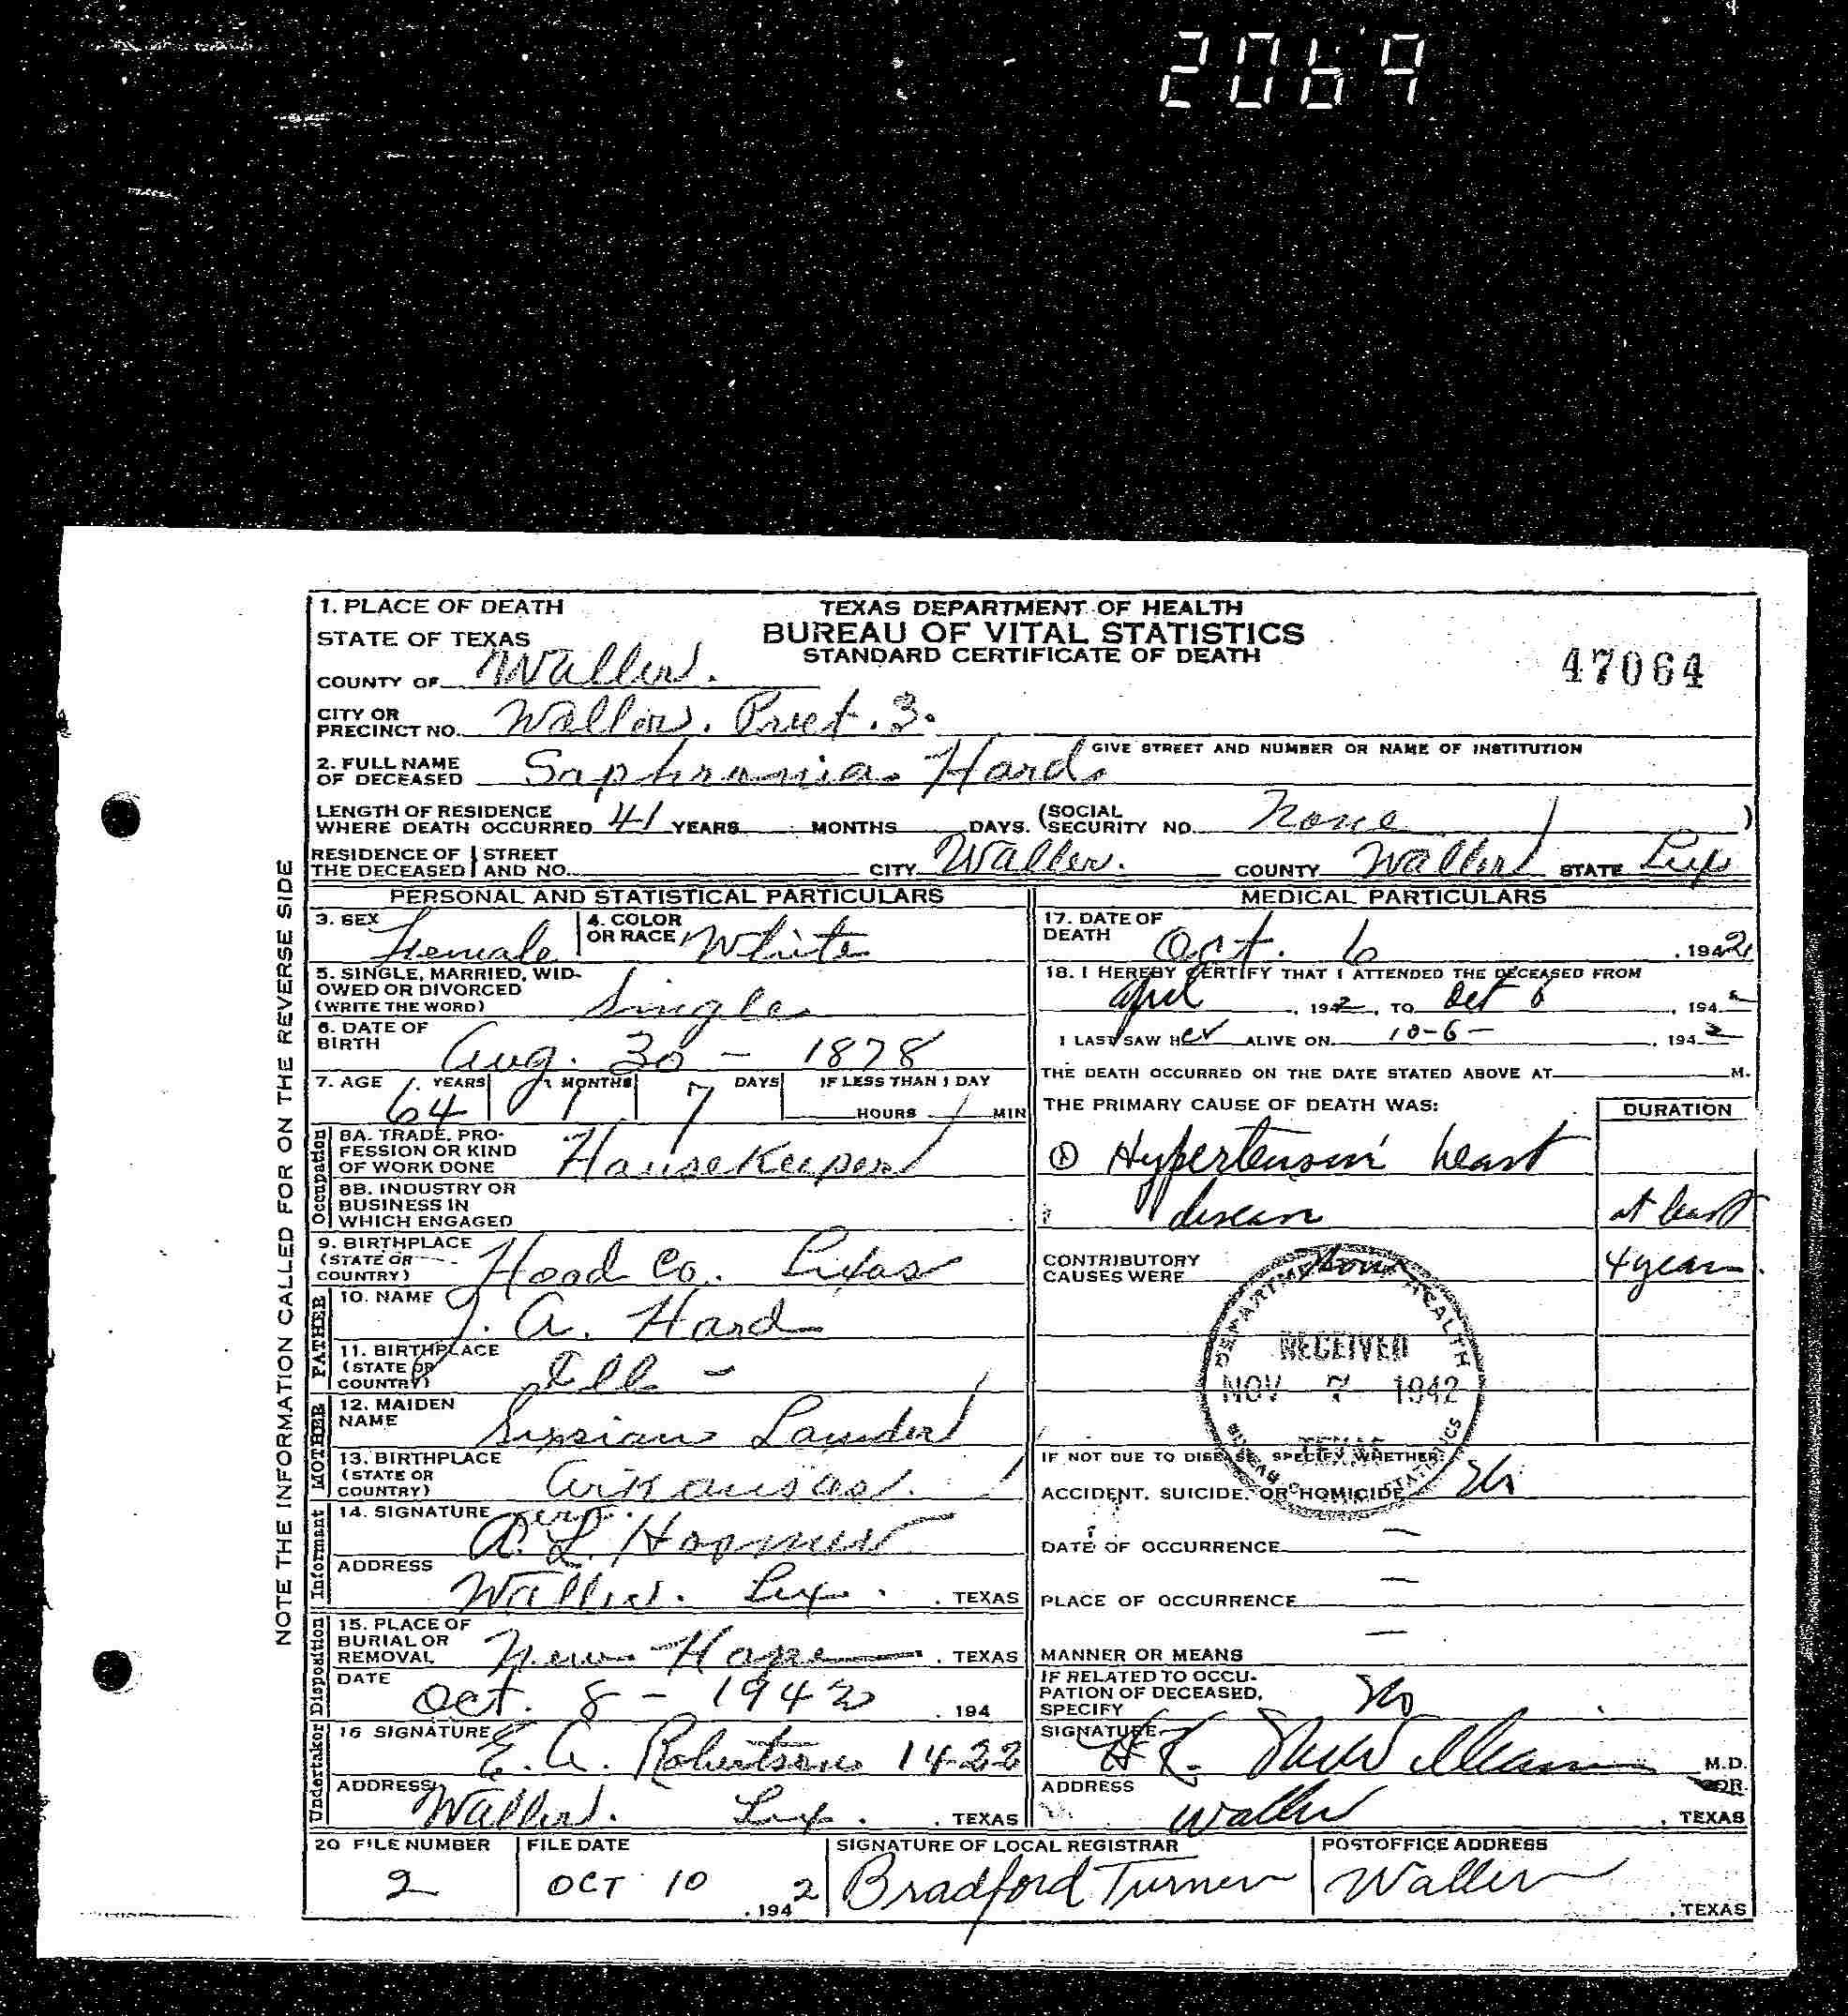 2069
1. PLACE OF DEATH
STATE OF TEXAS
TEXAS DEPARTMENT OF HEALTH
BUREAU OF VITAL STATISTICS
STANDARD CERTIFICATE OF DEATH
47064
COUNTY OF Waller.
CITY OR PRECINCT NO. Waller. Prect. 3.
GIVE STREET AND NUMBER OR NAME OF INSTITUTION
2. FULL NAME OF DECEASED Saphronia Hard
LENGTH OF RESIDENCE WHERE DEATH OCCURRED 41 YEARS MONTHS DAYS. (SOCIAL SECURITY NO. None )
RESIDENCE OF THE DECEASED STREET AND NO. CITY Waller. COUNTY Waller STATE Tex
NOTE THE INFORMATION CALLED FOR ON THE REVERSE SIDE
PERSONAL AND STATISTICAL PARTICULARS
3. SEX Female 4. COLOR OR RACE White
5. SINGLE, MARRIED, WIDOWED OR DIVORCED (WRITE THE WORD) Single
6. DATE OF BIRTH Aug. 30 - 1878
7. AGE YEARS MONTHS DAYS IF LESS THAN 1 DAY
64 1 7 HOURS MIN
Occupation
8A. TRADE, PROFESSION OR KIND OF WORK DONE Housekeeper
8B. INDUSTRY OR BUSINESS IN WHICH ENGAGED
9. BIRTHPLACE (STATE OR COUNTRY) Hood Co. Texas
FATHER
10. NAME J. A. Hard
11. BIRTHPLACE (STATE OR COUNTRY) Ill -
MOTHER
12. MAIDEN NAME
13. BIRTHPLACE (STATE OR COUNTRY) Arkansas.
Informant
14. SIGNATURE A. L.
ADDRESS Waller. Tex. , TEXAS
Disposition
15. PLACE OF BURIAL OR REMOVAL New Hope , TEXAS
DATE Oct. 8 - 1942 , 194
Undertaker
16 SIGNATURE E. A. Robertson 1422
ADDRESS Waller. Tex. , TEXAS
MEDICAL PARTICULARS
17. DATE OF DEATH Oct. 6 , 1942
18. I HEREBY CERTIFY THAT I ATTENDED THE DECEASED FROM
April , 1942, TO Oct 6 , 1942
I LAST SAW HER ALIVE ON 10-6- , 1942
THE DEATH OCCURRED ON THE DATE STATED ABOVE AT M.
THE PRIMARY CAUSE OF DEATH WAS: DURATION
Hypertension heart
disease at least
CONTRIBUTORY CAUSES WERE 4 years.
DEPARTMENT HEALTH
RECEIVED
NOV 7 1942
TEXAS
IF NOT DUE TO DISEASE, SPECIFY WHETHER:
ACCIDENT, SUICIDE, OR HOMICIDE No
DATE OF OCCURRENCE —
PLACE OF OCCURRENCE —
MANNER OR MEANS —
IF RELATED TO OCCUPATION OF DECEASED, SPECIFY No
SIGNATURE M.D.
OR.
ADDRESS Waller , TEXAS
20 FILE NUMBER FILE DATE SIGNATURE OF LOCAL REGISTRAR POSTOFFICE ADDRESS
2 OCT 10 , 1942 Bradford Turner Waller , TEXAS